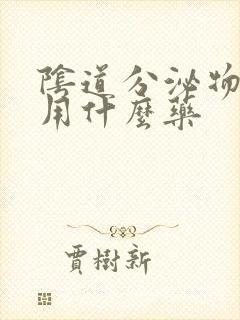 陰道分泌物
用什麼藥
賈樹新